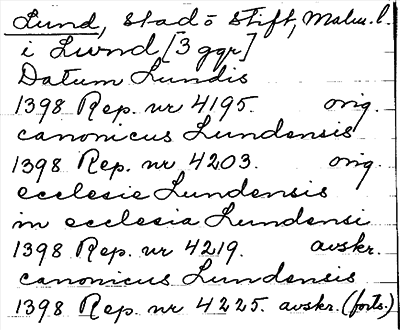 Lund, stad o stift, Malm. l.
i Lwnd [3 ggr]
Datum Lundis
1398 Rep. nr 4195. orig.
canonicus Lundensis
1398 Rep. nr 4203. orig.
ecclesie Lundensis
in ecclesia Lundensi
1398 Rep. nr 4219. avskr.
canonicus Lundensis
1398 Rep. nr 4225. avskr. (forts.)